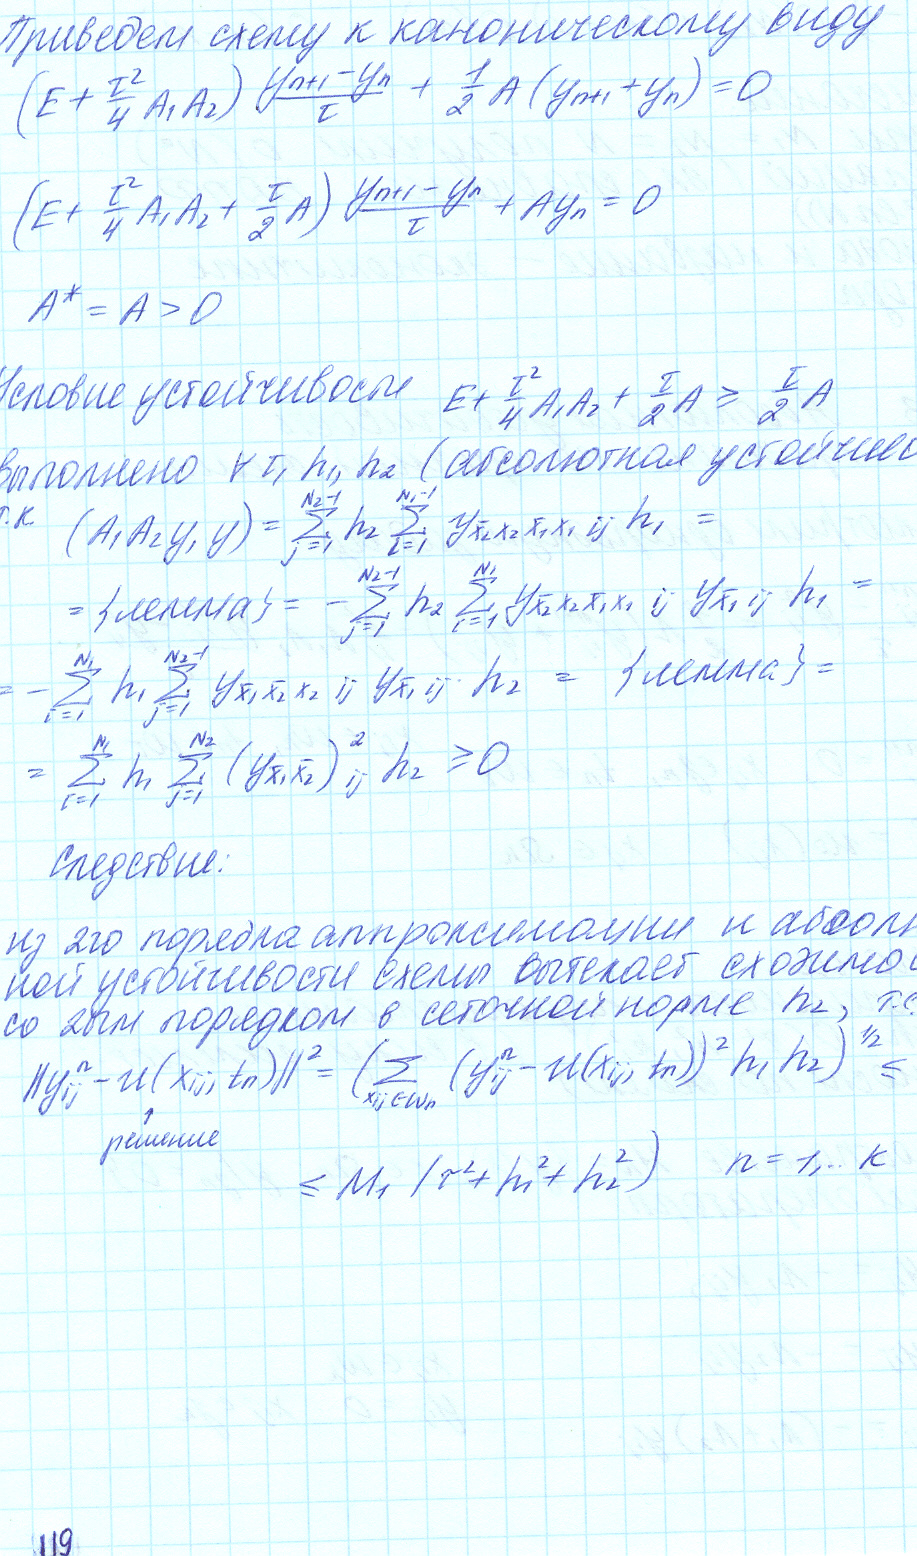 Приведем схему к каноническому виду
(E + τ²/4 A₁A₂) (yₙ₊₁ - yₙ)/τ + 1/2 A (yₙ₊₁ + yₙ) = 0
(E + τ²/4 A₁A₂ + τ/2 A) (yₙ₊₁ - yₙ)/τ + Ayₙ = 0
A* = A > 0
Условие устойчивости E + τ²/4 A₁A₂ + τ/2 A ≥ τ/2 A
выполнено ∀ τ, h₁, h₂ (абсолютная устойчивос
т.к (A₁A₂y, y) = ∑_{j=1}^{N₂-1} h₂ ∑_{i=1}^{N₁-1} y_{x̄₂x₂x̄₁x₁ ij} h₁ =
= {лемма} = - ∑_{j=1}^{N₂-1} h₂ ∑_{i=1}^{N₁} y_{x̄₂x₂x̄₁x₁ ij} y_{x̄₁ ij} h₁ =
= - ∑_{i=1}^{N₁} h₁ ∑_{j=1}^{N₂-1} y_{x̄₁x̄₂x₂ ij} y_{x̄₁ ij} h₂ = {лемма} =
= ∑_{i=1}^{N₁} h₁ ∑_{j=1}^{N₂} (y_{x̄₁x̄₂})²_{ij} h₂ ≥ 0
Следствие:
из 2го порядка аппроксимации и абсолю
ной устойчивости схемы вытекает сходимос
со 2ым порядком в сеточной норме h₂, т.е.
||yⁿᵢⱼ - u(xᵢⱼ, tₙ)||² = (∑_{xᵢⱼ∈ωₙ} (yⁿᵢⱼ - u(xᵢⱼ, tₙ))² h₁ h₂)^{1/2} ≤
↑
решение
≤ M₁ (τ² + h₁² + h₂²) n = 1,.. K
119